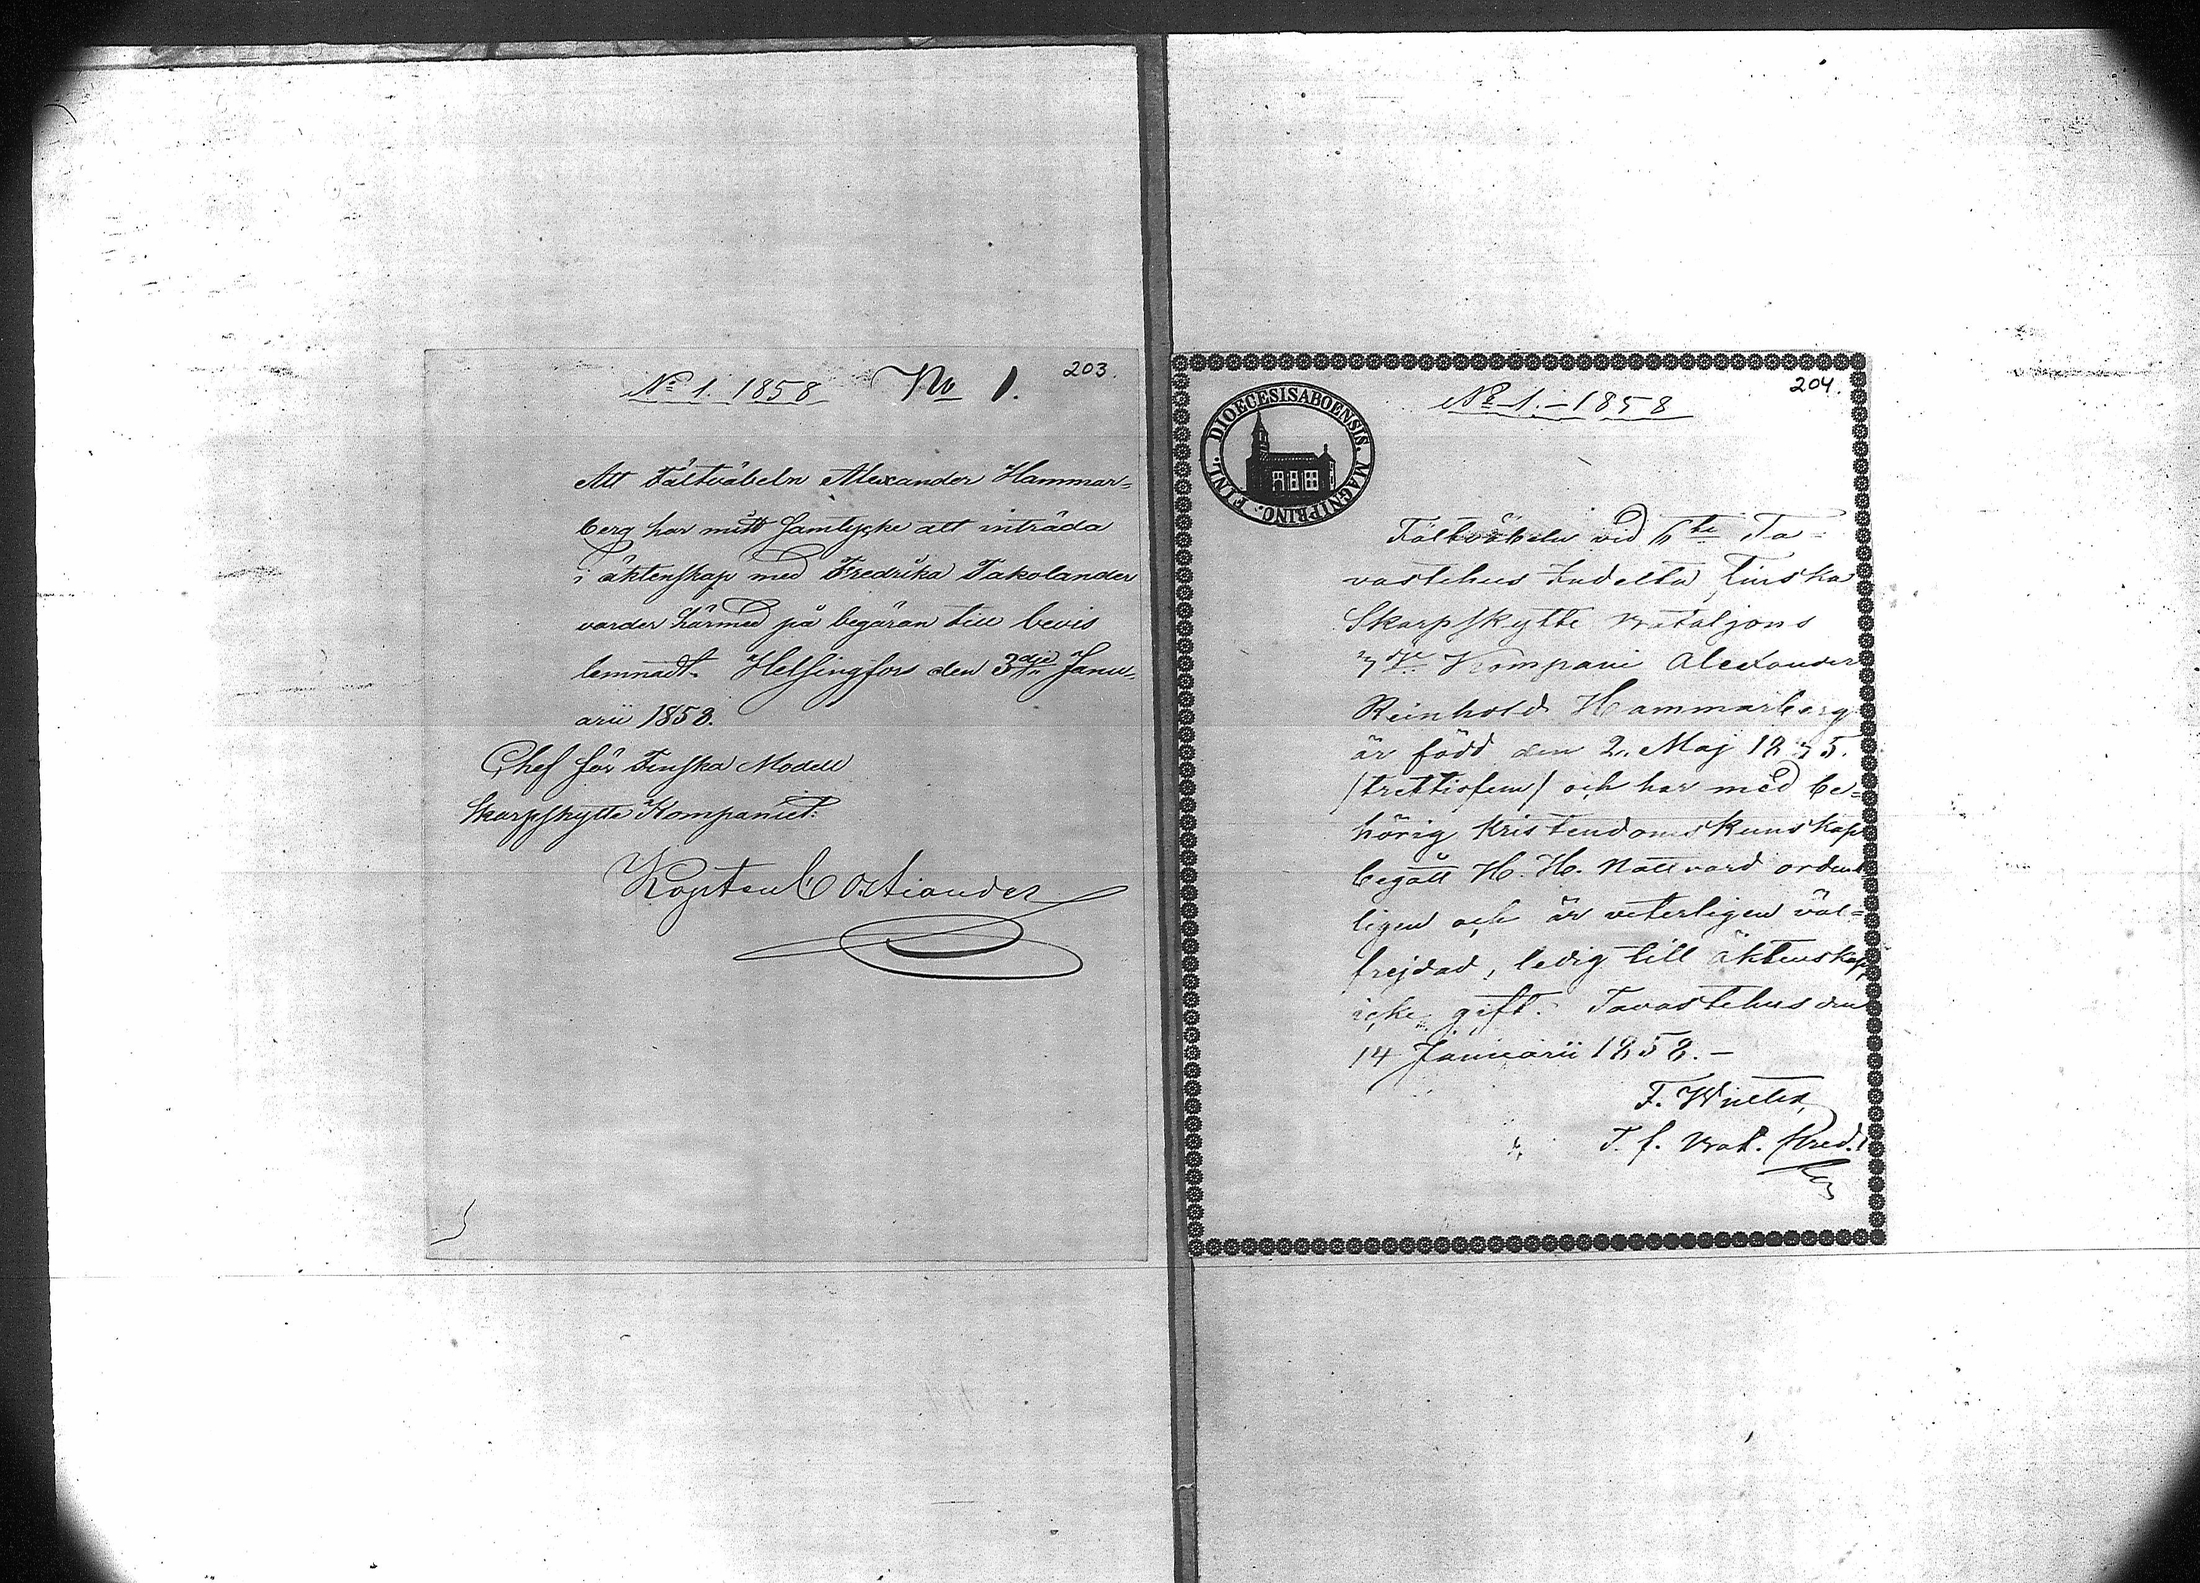 203.
No 1. 1858 No 1.
Att Fältväbeln Alexander Hammar=
berg har mitt samtycke att inträda
i äktenskap med Fredrika Takolander
varder härmed på begäran till bevis
lemnadt. Helsingfors den 3dje Janu=
arii 1858.
Chef för Finska Modell
Skarpskytte Kompaniet:
Kapten C Ostiander
204.
No 1.–1858
DIOECESIS ABOENSIS MAGNI PRINC. FINL.
Fältväbeln vid 6te Ta=
vastehus Indelta Finska
Skarpskytte Bataljons
3dje Kompani Alexander
Reinhold Hammarberg
är född den 2. Maj 1835.
/trettiofem/ och har med be=
hörig Kristendomskunskap
begått H. H. Nattvard ordent
ligen och är veterligen väl=
frejdad, ledig till äktenskap,
icke gift. Tavastehus den
14 Januarii 1858.–
F.
T. f. Bat. Pred.